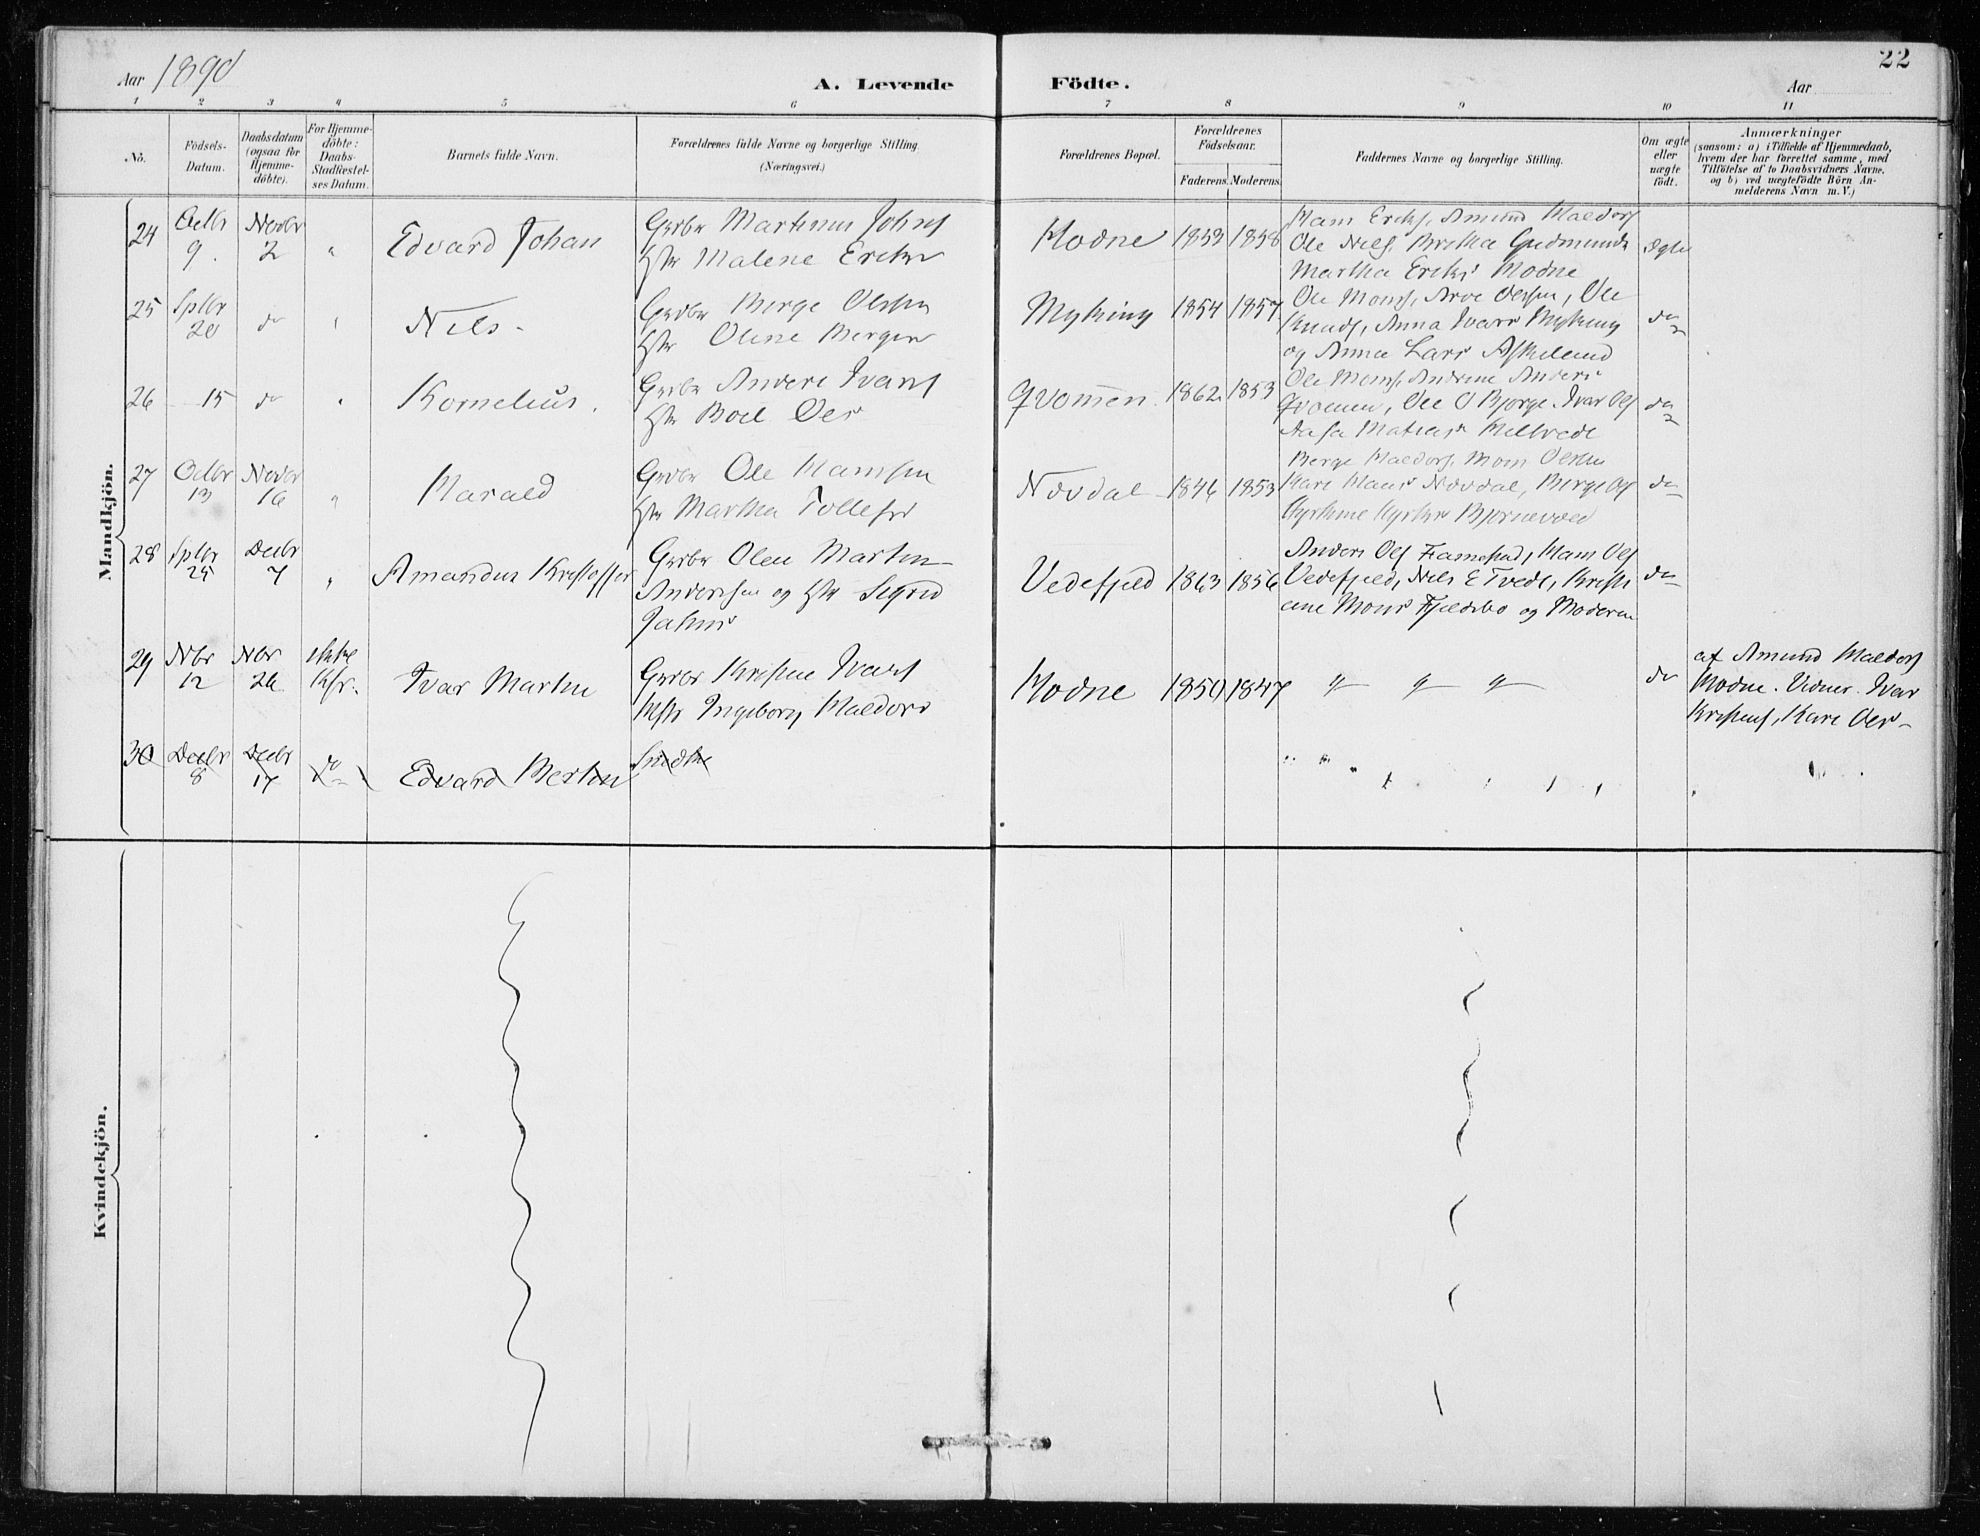 Aar 1890
A. Levende Födte.
22
Aar
1 2 3 4 5 6 7 8 9 10 11
No.
Födsels-Datum.
Daabsdatum (ogsaa for Hjemme-döbte).
For Hjemme-döbte: Daabs-Stadfæstel-ses Datum.
Barnets fulde Navn.
Forældrenes fulde Navne og borgerlige Stilling. (Næringsvei.)
Forældrenes Bopæl.
Forældrenes Födselsaar.
Faderens. Moderens.
Faddernes Navne og borgerlige Stilling.
Om ægte eller uægte födt.
Anmærkninger
(saasom: a) i Tilfælde af Hjemmedaab,
hvem der har forrettet samme, med
Tilföielse af to Daabsvidners Navne,
og b) ved uægtefödte Börn An-
melderens Navn m. V.)
Mandkjön.
24 Octbr 9. Novbr 2 " Edvard Johan
Grbr Martinus Johns
Hst Malene Eriks
Hodne 1853 1858
Hans Eriks, Amund Haldors
Ole Nils, Britha Gudmunds
Martha Eriks Hodne
Ægte
25 Sptbr 20 do " Nils.
Grdbr Børge Olsen
Hst Oline Børges
Myking 1854 1857
Ole Mons, Arve Olsen, Ole
Knuds, Anna Ivars Myking
og Anna Lars Askeland
do
26 15 do " Kornelius.
Grdbr Anders Ivars
Hst Boel Ols
Qvomen 1862 1853
Ole Mons, Andrine Anders
Qvomen, Ole O Bjorge. Ivar Ols
Aasa Matias
do
27 Octbr 13 Novbr 16 " Harald
Grdbr Ole Hansen
Hst Martha Tollefs
Nævdal 1846 1853
Berge Haldors, Mons Olsen
Kari Hans Nævdal, Berge Ols
do
28 Sptbr 25 Decbr 7 " Amandus Kristoffer
Grdbr Olai Martin
Andersen og Hst Sigrid
Vedefjeld 1863 1856
Anders Ols Hans Ols
Vedefjeld, Nils E Tvedt, Kristi
ane Mons Fjeldsbo og Moderen
do
29 Nbr 12 Nbr 26 Ikke Kfr. Ivar Martin
Grdbr Kristen Ivars
Hst Ingeborg Haldors
Hodne 1850 1847 " " "
do
af Amund Haldors
Hodne. Vidner. Ivar
Kristens, Kari Ols
30 Decbr 8 Decbr 17 do Edvard Mertin
Kvindekjön.